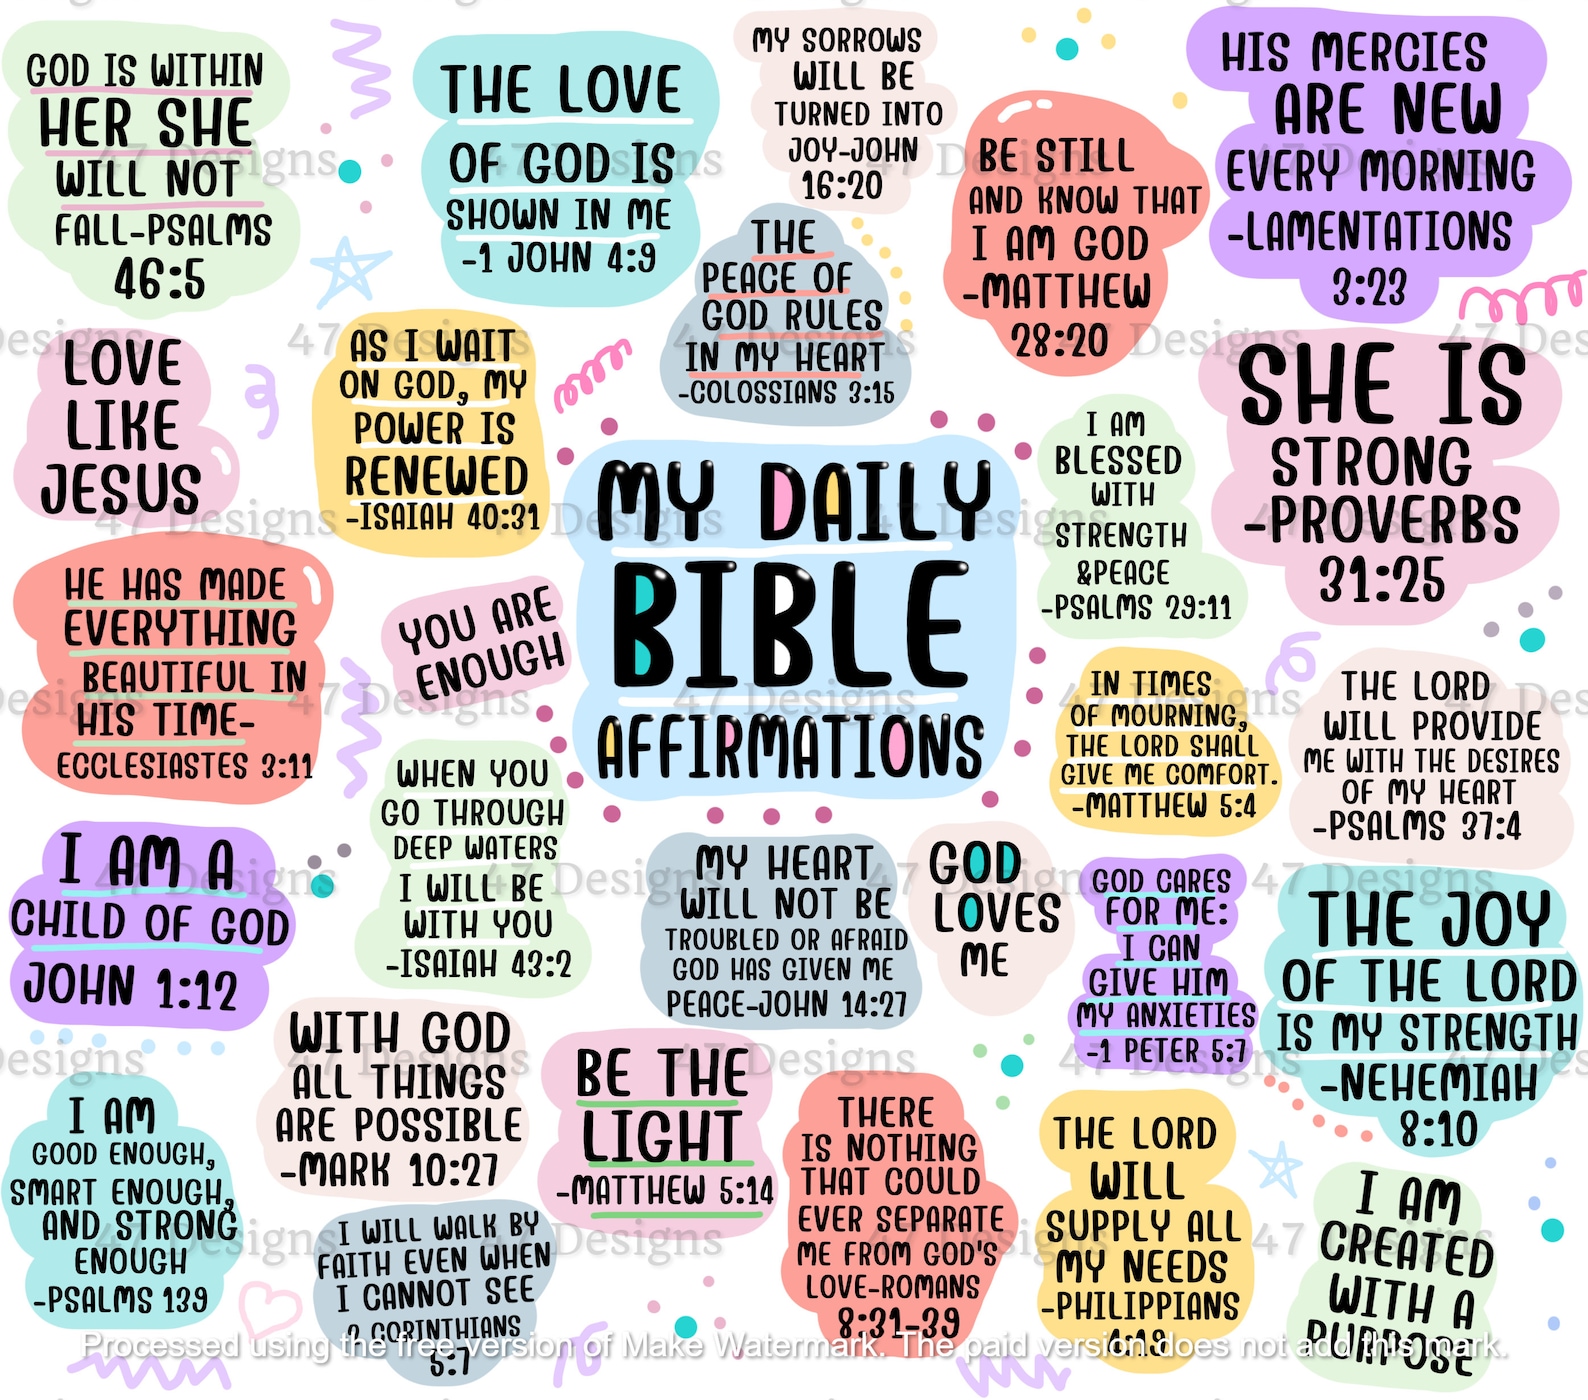 GOD IS WITHIN
HER SHE
WILL NOT
FALL-PSALMS
46:5
THE LOVE
OF GOD IS
SHOWN IN ME
-1 JOHN 4:9
MY SORROWS
WILL BE
TURNED INTO
JOY-JOHN
16:20
BE STILL
AND KNOW THAT
I AM GOD
-MATTHEW
28:20
HIS MERCIES
ARE NEW
EVERY MORNING
-LAMENTATIONS
3:23
THE
PEACE OF
GOD RULES
IN MY HEART
-COLOSSIANS 3:15
LOVE
LIKE
JESUS
AS I WAIT
ON GOD, MY
POWER IS
RENEWED
-ISAIAH 40:31
I AM
BLESSED
WITH
STRENGTH
&PEACE
-PSALMS 29:11
SHE IS
STRONG
-PROVERBS
31:25
MY DAILY
BIBLE
AFFIRMATIONS
HE HAS MADE
EVERYTHING
BEAUTIFUL IN
HIS TIME-
ECCLESIASTES 3:11
YOU ARE
ENOUGH
IN TIMES
OF MOURNING,
THE LORD SHALL
GIVE ME COMFORT.
-MATTHEW 5:4
THE LORD
WILL PROVIDE
ME WITH THE DESIRES
OF MY HEART
-PSALMS 37:4
WHEN YOU
GO THROUGH
DEEP WATERS
I WILL BE
WITH YOU
-ISAIAH 43:2
I AM A
CHILD OF GOD
JOHN 1:12
MY HEART
WILL NOT BE
TROUBLED OR AFRAID
GOD HAS GIVEN ME
PEACE-JOHN 14:27
GOD
LOVES
ME
GOD CARES
FOR ME:
I CAN
GIVE HIM
MY ANXIETIES
-1 PETER 5:7
THE JOY
OF THE LORD
IS MY STRENGTH
-NEHEMIAH
8:10
WITH GOD
ALL THINGS
ARE POSSIBLE
-MARK 10:27
BE THE
LIGHT
-MATTHEW 5:14
I AM
GOOD ENOUGH,
SMART ENOUGH,
AND STRONG
ENOUGH
-PSALMS 139
I WILL WALK BY
FAITH EVEN WHEN
I CANNOT SEE
2 CORINTHIANS
5:7
THERE
IS NOTHING
THAT COULD
EVER SEPARATE
ME FROM GOD'S
LOVE-ROMANS
8:31-39
THE LORD
WILL
SUPPLY ALL
MY NEEDS
-PHILIPPIANS
4:19
I AM
CREATED
WITH A
PURPOSE
47 Designs
Processed using the free version of Make Watermark. The paid version does not add this mark.